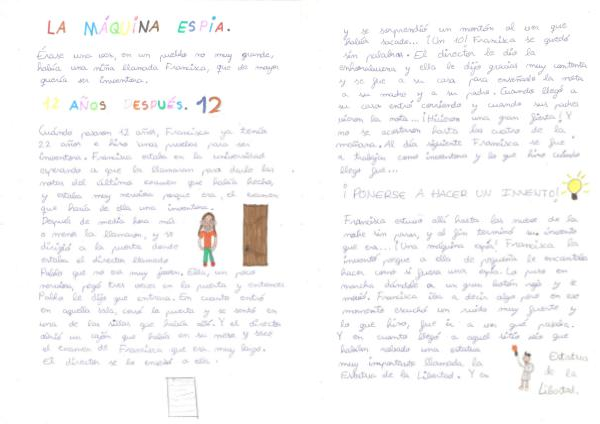 LA MÁQUINA ESPIA.
Érase una vez, en un pueblo no muy grande,
había una niña llamada Francisca, que de mayor
quería ser inventora.
12 AÑOS DESPUÉS. 12
Cuándo pasaron 12 años, Francisca ya tenía
22 años e hizo unas pruebas para ser
inventora. Francisca estaba en la universidad
esperando a que la llamaran para darle las
notas del último examen que había hecho,
y estaba muy nerviosa porque era el examen
que haría de ella una inventora.
Después de media hora más
o menos la llamaron, y se
dirigió a la puerta donde
estaba el director llamado
Pablo que no era muy joven. Ella, un poco
nerviosa, pegó tres veces en la puerta y entonces
Pablo le dijo que entrara. En cuanto entró
en aquella sala, cerró la puerta y se sentó en
una de las sillas que había allí. Y el director
abrió un cajón que había en su mesa y sacó
el examen de Francisca que era muy largo.
El director se lo enseñó a ella.
y se sorprendió un montón al ver que
había sacado... ¡Un 10! Francisca se quedó
sin palabras. El director le dio la
enhorabuena y ella le dijo gracias muy contenta
y se fue a su casa para enseñarle la nota
a su madre y a su padre. Cuando llegó a
su casa entró corriendo y cuando sus padres
vieron la nota... ¡Hicieron una gran fiesta! Y
no se acostaron hasta las cuatro de la
mañana. Al día siguiente Francisca se fue
a trabajar como inventora y lo que hizo cuando
llegó fue...
¡PONERSE A HACER UN INVENTO!
Francisca estuvo allí hasta las nueve de la
noche sin parar, y al fin terminó su invento
que era... ¡Una máquina espía! Francisca la
inventó porque a ella de pequeña le encantaba
hacer como si fuera una espía. La puso en
marcha dándole a un gran botón rojo y se
movió. Francisca iba a decir algo pero en ese
momento escuchó un ruido muy fuerte y
lo que hizo, fue ir a ver qué pasaba.
Y en cuanto llegó a aquel sitio vio que
habían robado una estatua
muy importante llamada la
Estatua de la Libertad. Y en
Estatua
de la
Libertad.